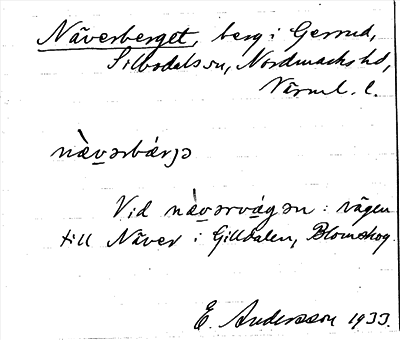 Näverberget, berg i Gerrud,
Silbodals sn, Nordmarks hd,
Värml. l.
nä̀vərbárjə
Vid nä̀vərvä́gən: vägen
till Näver i Gilldalen, Blomskog.
E. Andersson 1933.